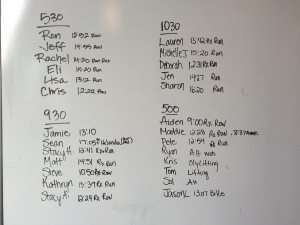 530
Ron 12:52 Run
Jeff 14:55 Run
Rachel 14:20 Run
Eli 15:20 Run
Lisa 13:12 Run
Chris 12:22 Run
930
Jamie 13:10
Sean 17:05
Stacy H. 12:41 Rx Row
Matt 14:51 Rx Run
Steve 10:50 Rx Row
Kathryn 13:39 Rx Run
Stacy A. 12:24 Rx Row
1030
Lauren 13:12 Rx Run
Michelle J 15:20 Run
Deborah 12:31 Rx Run
Jen 19:27 Run
Sharon 16:20 Run
500
Aiden 9:00 Rx Row
Maddie 12:28 Rx Row
Pete 12:54 Rx Run
Ryan Alt WOD
Kris Oly Lifting
Tom Lifting
Sol Alt
Jason L 13:07 Bike